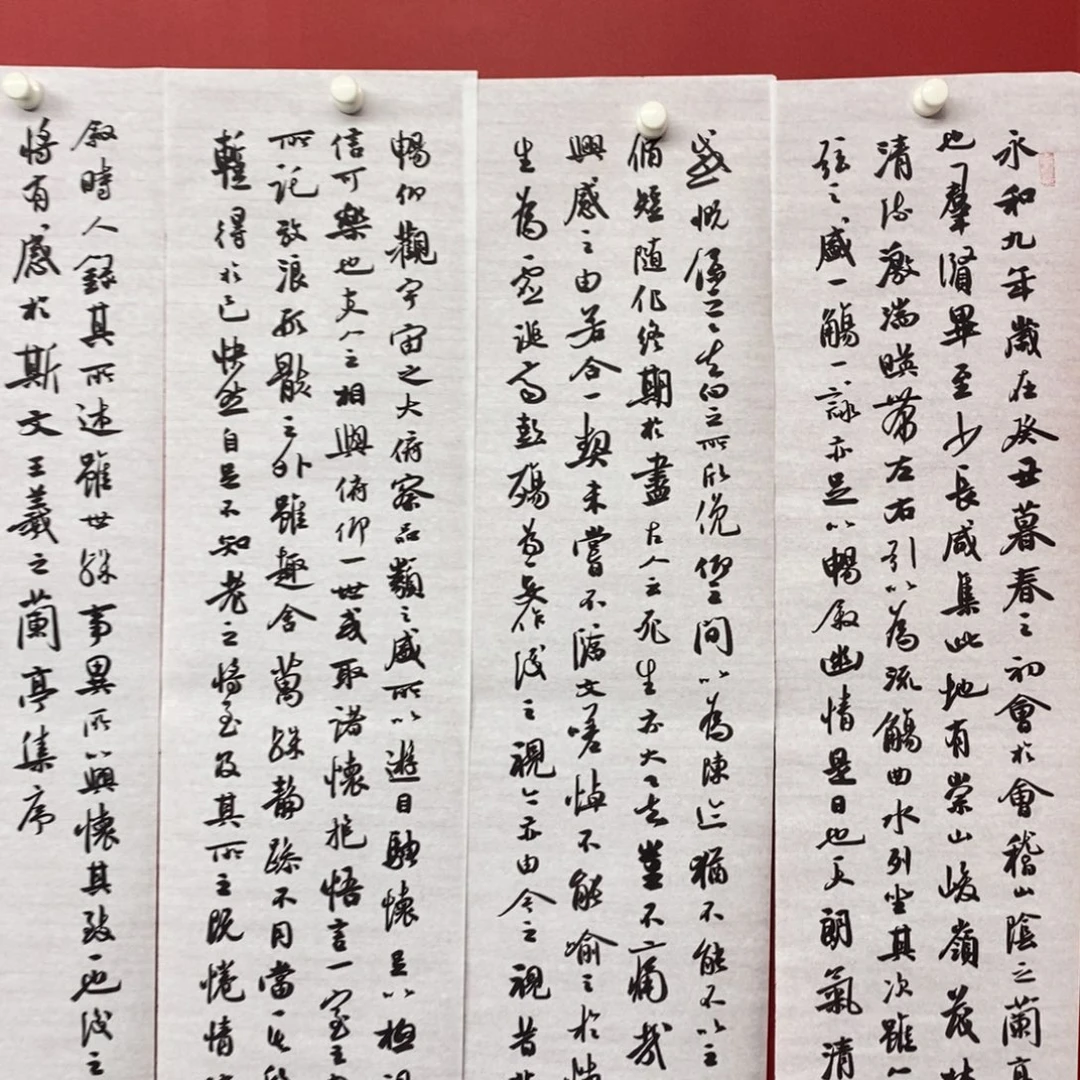 永和九年歲在癸丑暮春之初會於會稽山陰之蘭亭
也羣賢畢至少長咸集此地有崇山峻嶺茂林
清流激湍暎帶左右引以為流觴曲水列坐其次雖
弦之盛一觴一詠亦足以暢敘幽情是日也天朗氣清
感慨係之矣向之所欣俛仰之間以為陳迹猶不能不以之
脩短隨化終期於盡古人云死生亦大矣豈不痛哉
興感之由若合一契未嘗不臨文嗟悼不能喻之於懷
生為虛誕齊彭殤為妄作後之視今亦由今之視昔
暢仰觀宇宙之大俯察品類之盛所以遊目騁懷足以極視
信可樂也夫人之相與俯仰一世或取諸懷抱悟言一室之
所託放浪形骸之外雖趣舍萬殊靜躁不同當其欣
暫得於己快然自足不知老之將至及其所之既惓情
敘時人錄其所述雖世殊事異所以興懷其致一也後之
將有感於斯文王羲之蘭亭集序